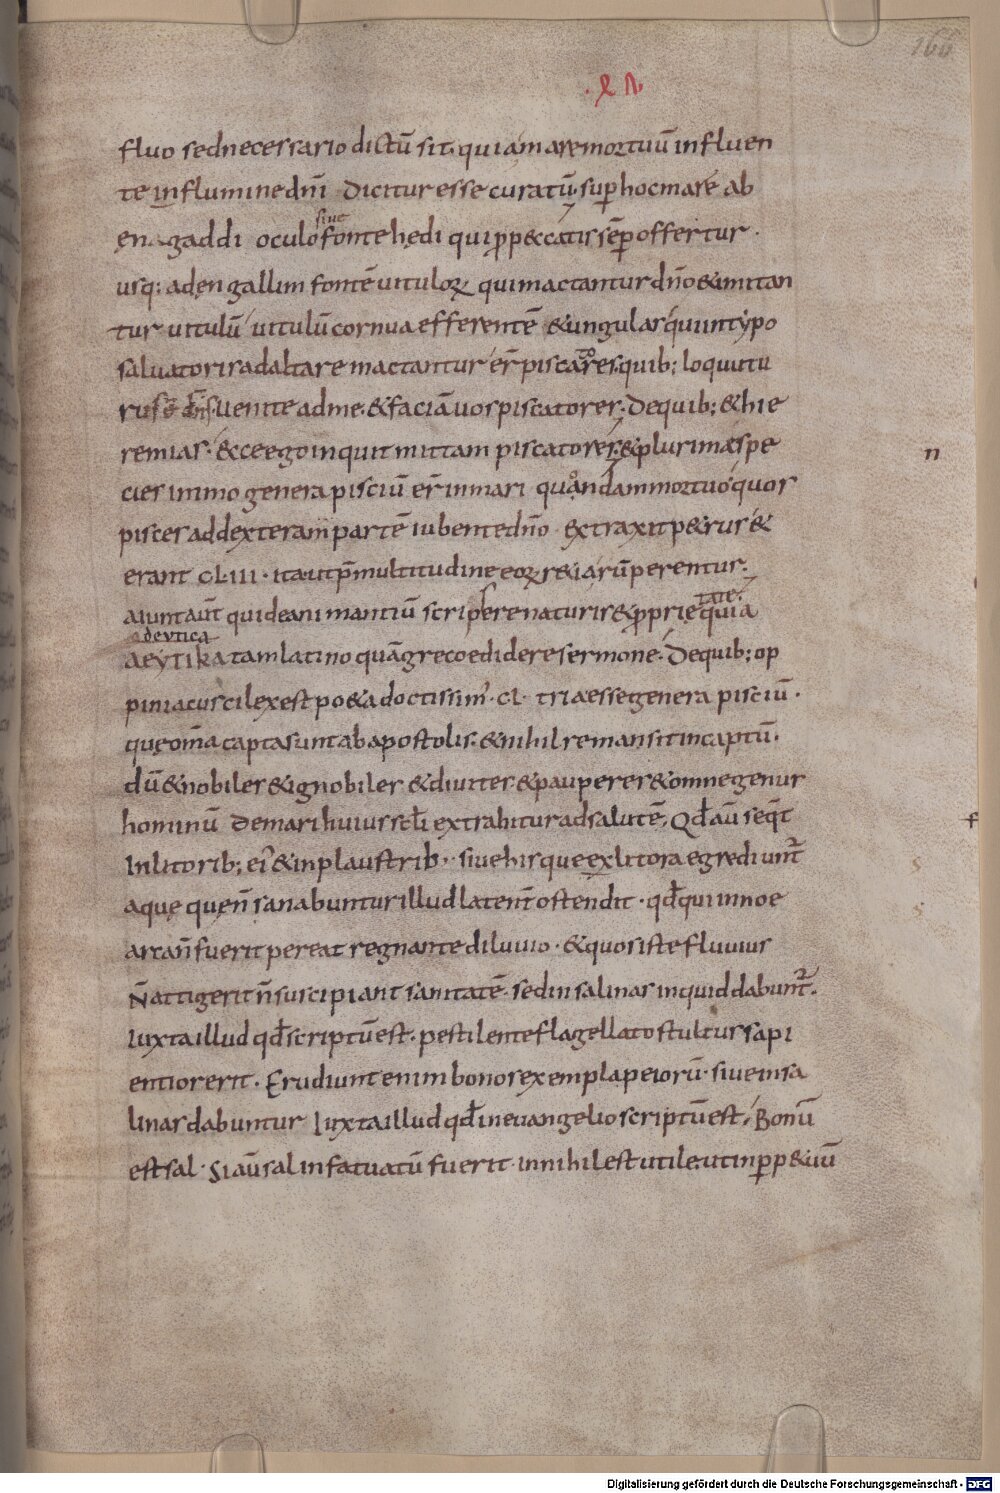 166
fluo sed necessario dictū sit. quia mare mortuū influen
te influmine dn̄i dicitur esse curatū, sup̱ hoc mare ab
ęnagaddi oculo siue fonte hędi qui p̱ p&catis sēp̱ offertur.
usq; ad ęngallim fontē uituloꝝ qui mactantur dn̄o & imitan
tur uitulū uitulū cornua efferentē & ungulas quiintypo
saluatoris ad altare mactantur. er̄ piscatores. quib; loquutu
ruſ ē dn̄ſ. Uenite ad me. & faciā uos piscatores. De quib; & hie
remias. &cce ego inquit mittam piscatores. & plurimæ spe
cies immo genera pisciū er̄ in mari quondam mortuo. quos
pisces ad dexteram partē iubente dn̄o extraxit p&rus. &
erant CLIII. ita ut p̄ multitudine eoꝝ r&ia rūperentur.
aiunt aūt qui de animantiū scripsere naturis & p̱prię tate. qui a
adeutica
ΑΕΥΤΙΚΑ tam latino quā greco edidere sermone. De quib; op
pinianus cilex est po&a doctissim'. CL. tria esse genera pisciū.
quę om̄a capta sunt ab apostolis. & nihil remansit in captū.
dū & nobiles & ignobiles & diuites. & pauperes & omne genus
hominū De mari huius sc̄li extrahitur ad salutē, Qđ aū seq̄t
In litorib; ei' & in plaustrib;. siue his que ex litora egrediunt̄
aquę quę n̄ sanabuntur illud latent̄ ostendit. qđ qui in noe
arca n̄ fuerit pereat regnante diluuio. & quos iste fluuius
N̄ attigerit n̄ suscipiant sanitatē. sed in salinas inquid dabunt̄.
Iuxta illud qđ scriptū est. pestilente flagellato stultus sapi
entior erit. Erudiunt enim bonos exempla peiorū. siue in sa
linas dabuntur Iuxta illud qđ in euangelio scriptū est, Bonū
est sal. Si aū sal infatuatū fuerit. in nihil est utile. ut in p̱p&uū
n
f
Digitalisierung gefördert durch die Deutsche Forschungsgemeinschaft - DFG